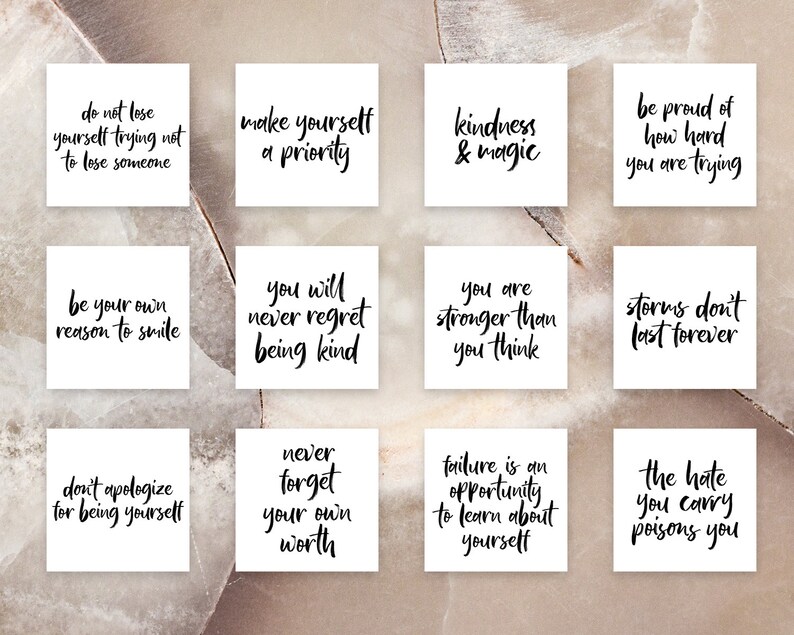 do not lose
yourself trying not
to lose someone
make yourself
a priority
kindness
& magic
be proud of
how hard
you are trying
be your own
reason to smile
you will
never regret
being kind
you are
stronger than
you think
storms don't
last forever
don't apologize
for being yourself
never
forget
your own
worth
failure is an
opportunity
to learn about
yourself
the hate
you carry
poisons you